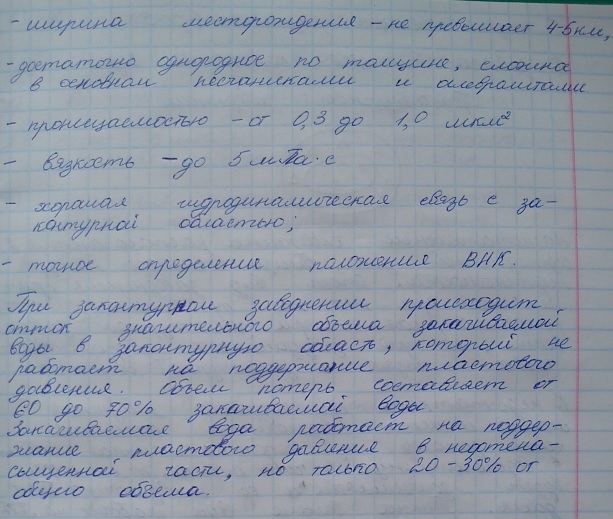 - ширина месторождения - не превышает 4-5 км,
- достаточно однородное по толщине, сложено
в основном песчаниками и алевролитами
- проницаемостью - от 0,3 до 1,0 мкм²
- вязкость - до 5 мПа·с
- хорошая гидродинамическая связь с за-
контурной областью;
- точное определение положения ВНК.
При законтурном заводнении происходит
отток значительного объема закачиваемой
воды в законтурную область, который не
работает на поддержание пластового
давления. Объем потерь составляет от
60 до 70% закачиваемой воды
Закачиваемая вода работает на поддер-
жание пластового давления в нефтена-
сыщенной части, но только 20-30% от
общего объема.